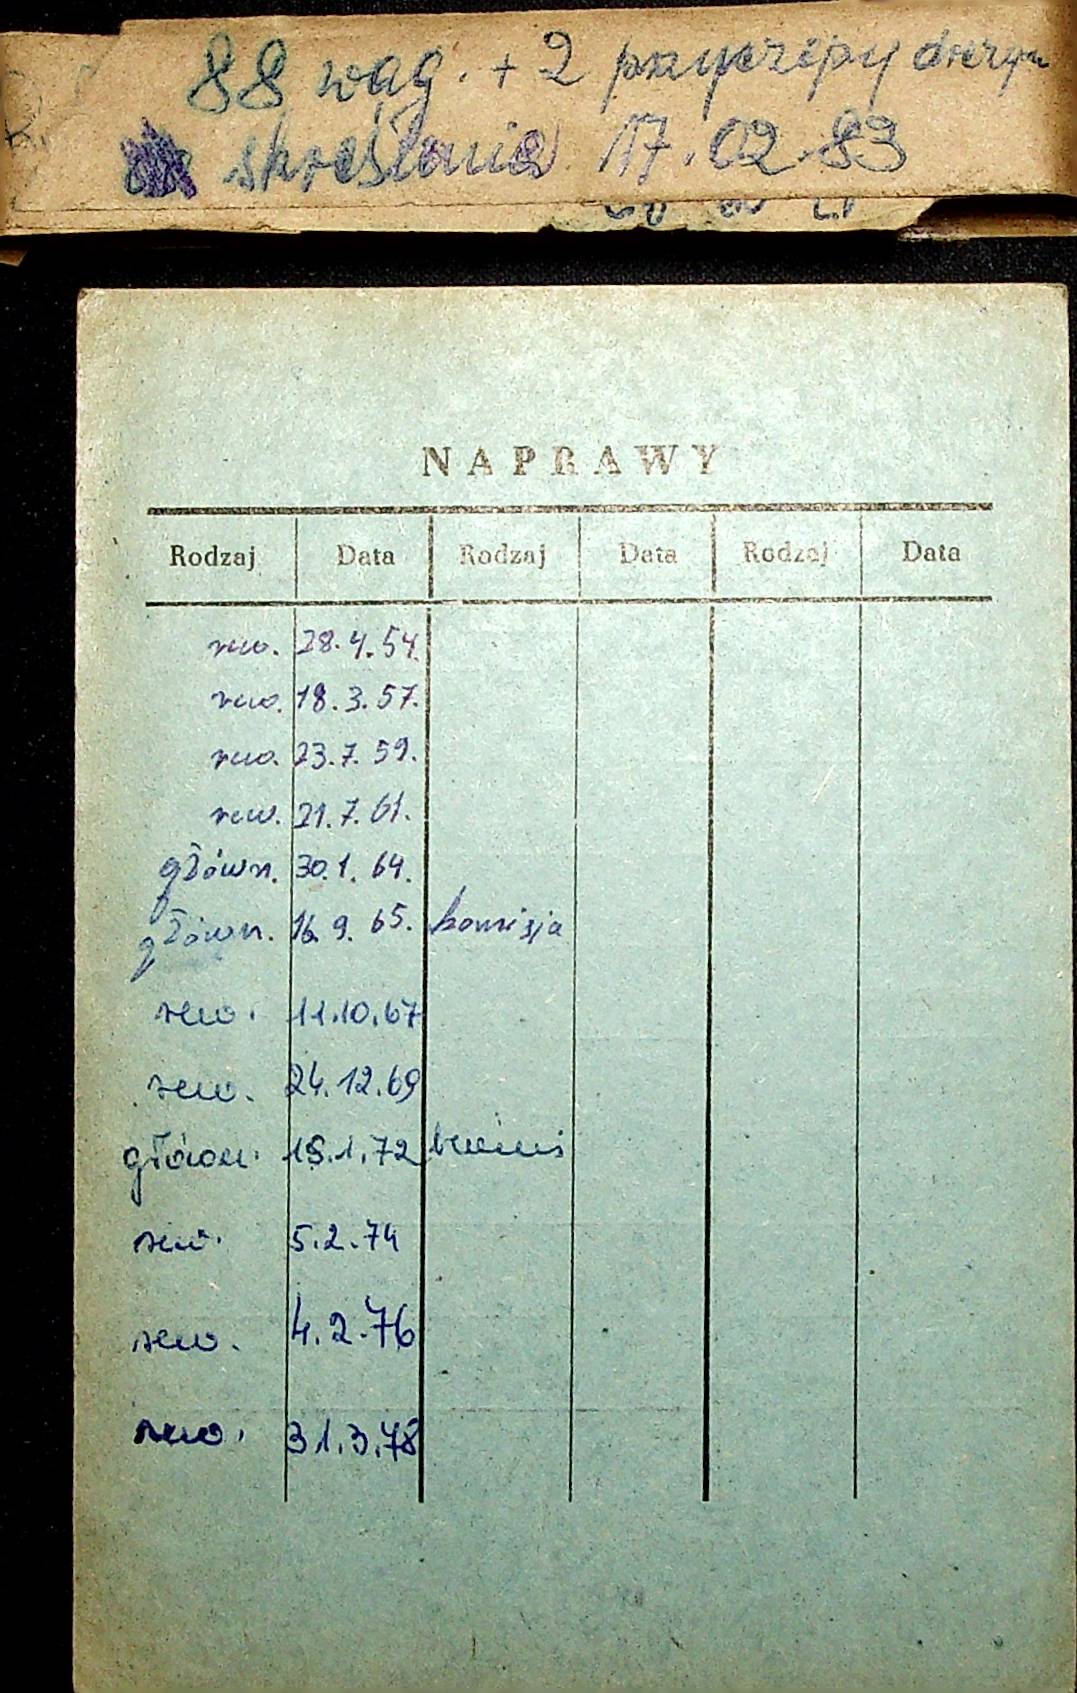 88 wag. + 2 przyczepy drezyn
skreślania 17.02.83
NAPRAWY
Rodzaj Data Rodzaj Data Rodzaj Data
rew. 28.4.54.
rew. 18.3.57.
rew. 23.7.59.
rew. 21.7.61.
główn. 30.1.64.
główn. 16.9.65. komisja
rew. 11.10.67
rew. 24.12.69
główn. 15.1.72
rew. 5.2.74
rew. 4.2.76
rew. 31.3.78